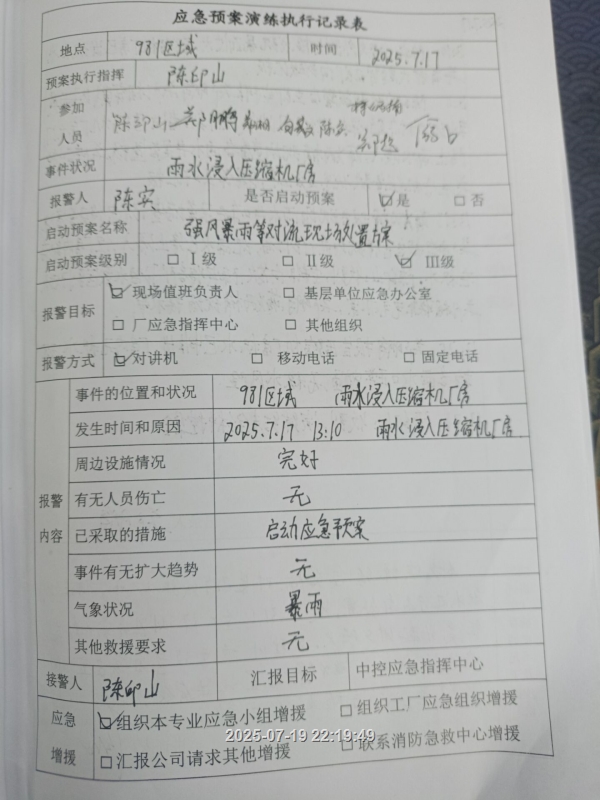 应急预案演练执行记录表
地点 981区域 时间 2025.7.17
预案执行指挥 陈印山
参加人员 陈印山
事件状况 雨水浸入压缩机厂房
报警人 陈实 是否启动预案 ☑是 □否
启动预案名称 强风暴雨等对流现场处置方案
启动预案级别 □Ⅰ级 □Ⅱ级 ☑Ⅲ级
报警目标 ☑现场值班负责人 □基层单位应急办公室
□厂应急指挥中心 □其他组织
报警方式 ☑对讲机 □移动电话 □固定电话
报警内容
事件的位置和状况 981区域 雨水浸入压缩机厂房
发生时间和原因 2025.7.17 13:10 雨水浸入压缩机厂房
周边设施情况 完好
有无人员伤亡 无
已采取的措施 启动应急预案
事件有无扩大趋势 无
气象状况 暴雨
其他救援要求 无
接警人 陈印山 汇报目标 中控应急指挥中心
应急增援 ☑组织本专业应急小组增援 □组织工厂应急组织增援
□汇报公司请求其他增援 □联系消防急救中心增援
2025-07-19 22:19:49